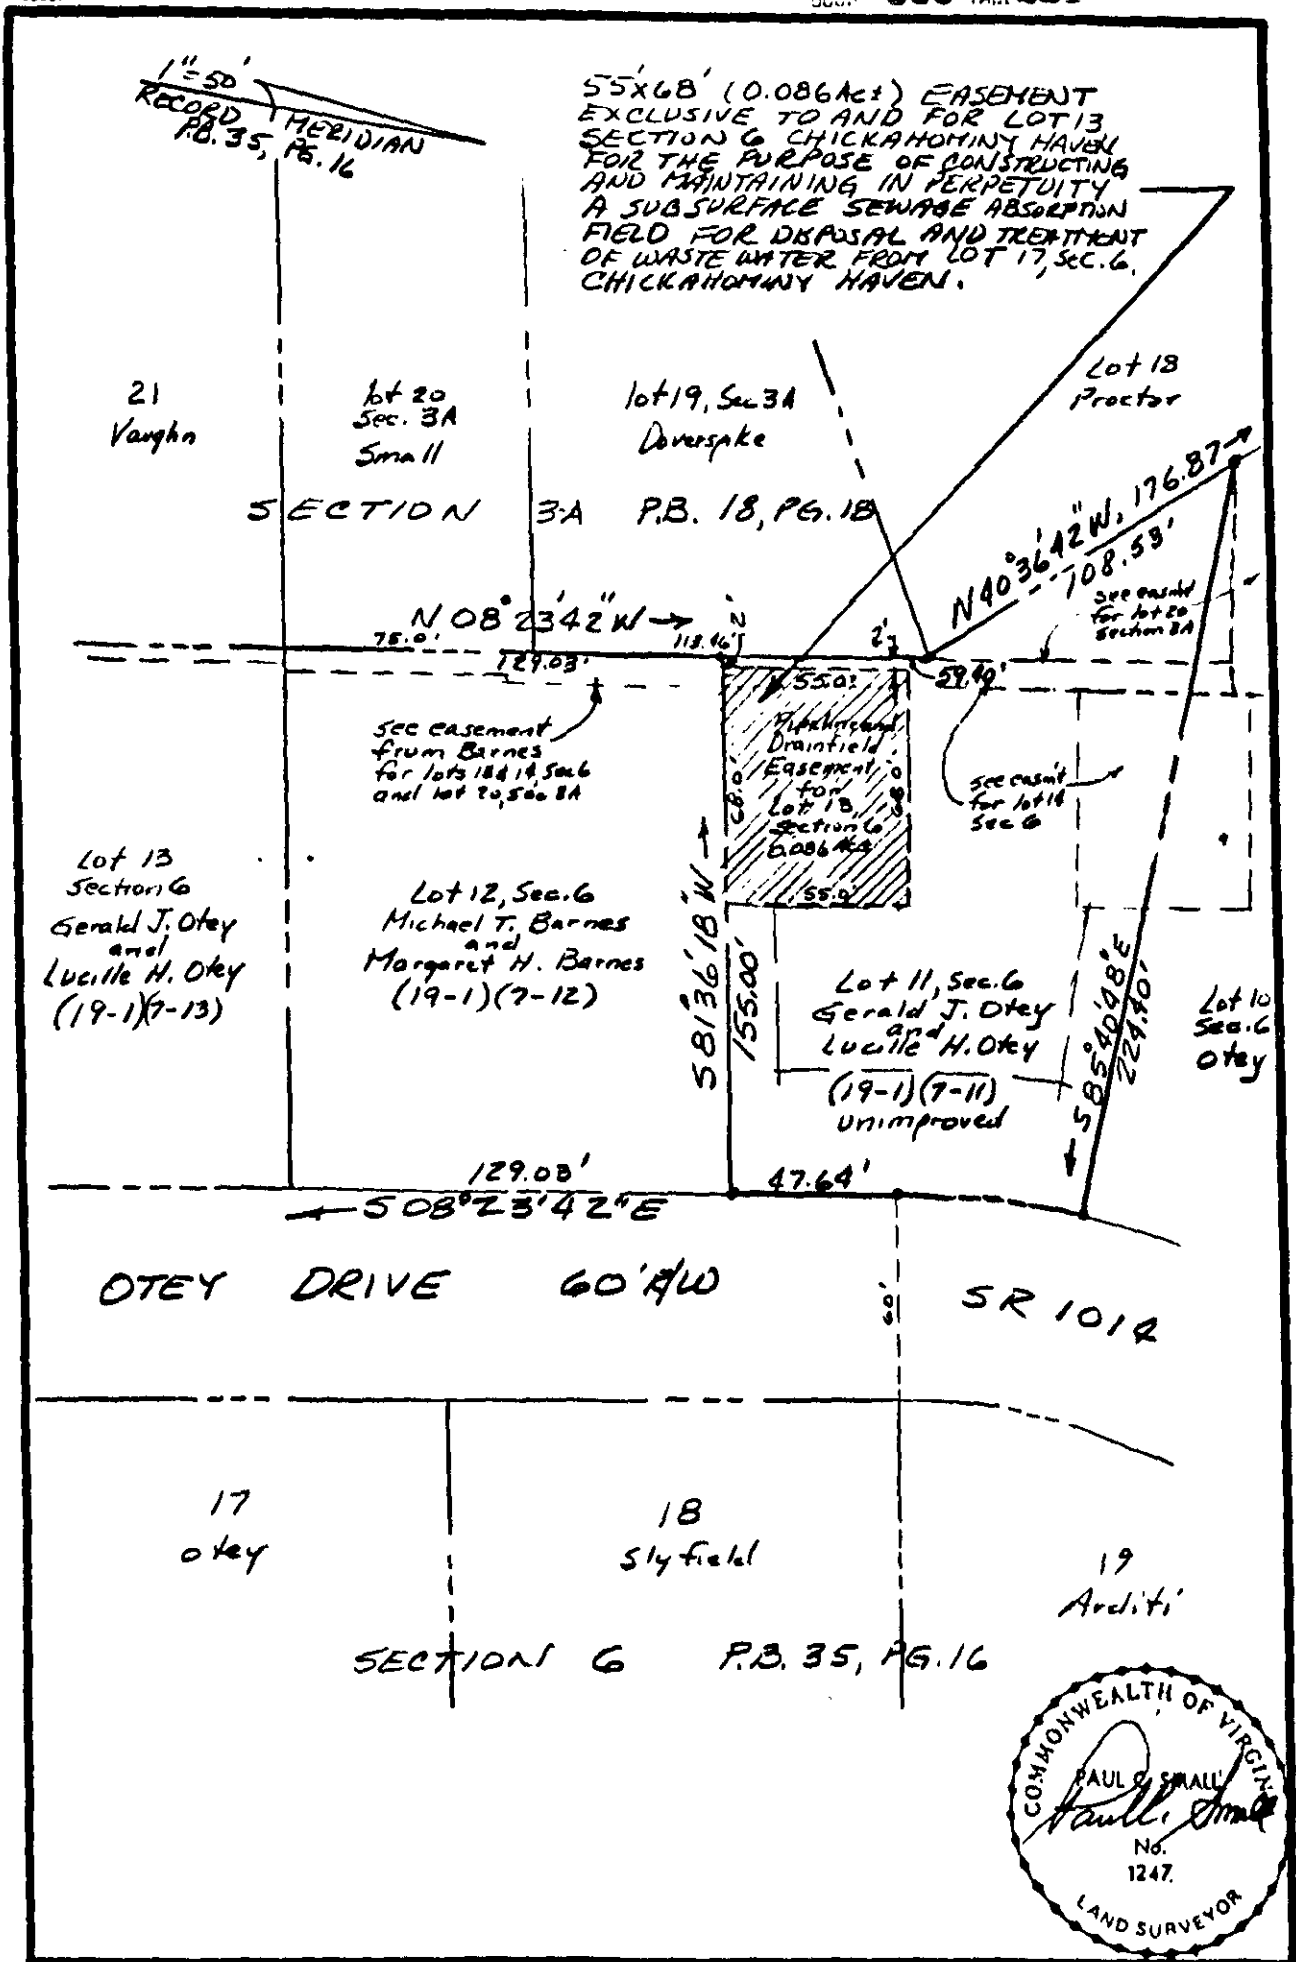 1"=50'
RECORD MERIDIAN
P.B. 35, PG. 16
55'x68' (0.086Ac±) EASEMENT
EXCLUSIVE TO AND FOR LOT 13
SECTION 6 CHICKAHOMINY HAVEN
FOR THE PURPOSE OF CONSTRUCTING
AND MAINTAINING IN PERPETUITY
A SUBSURFACE SEWAGE ABSORPTION
FIELD FOR DISPOSAL AND TREATMENT
OF WASTE WATER FROM LOT 17, SEC. 6,
CHICKAHOMINY HAVEN.
21
Vaughn
lot 20
Sec. 3A
Small
lot 19, Sec 3A
Doverspike
Lot 18
Proctor
SECTION 3A P.B. 18, PG. 18
N 40°36'42"W, 176.87
108.53'
see easmt
for lot 20
section 3A
N 08°23'42"W
75.0'
129.03'
113.16'
2'
2'
59.40'
55.0'
see easement
from Barnes
for lots 18 & 14, Sec 6
and lot 20, Sec 3A
Pipeline and
Drainfield
Easement
for
Lot 13,
Section 6
0.086 Ac±
68.0'
68.0'
55.0'
see easm't
for lot 14
Sec 6
Lot 13
Section 6
Gerald J. Otey
and
Lucille H. Otey
(19-1)(7-13)
Lot 12, Sec. 6
Michael T. Barnes
and
Margaret H. Barnes
(19-1)(7-12)
S 81°36'18"W
155.00'
Lot 11, Sec. 6
Gerald J. Otey
and
Lucille H. Otey
(19-1)(7-11)
unimproved
S 85°40'48"E
224.40'
Lot 10
Sec. 6
Otey
129.03'
S 08°23'42"E
47.64'
OTEY DRIVE 60' R/W
60'
SR 1014
17
otey
18
Slyfield
19
Arditi
SECTION 6 P.B. 35, PG. 16
COMMONWEALTH OF VIRGINIA
PAUL C. SMALL
Paul C. Small
No.
1247
LAND SURVEYOR